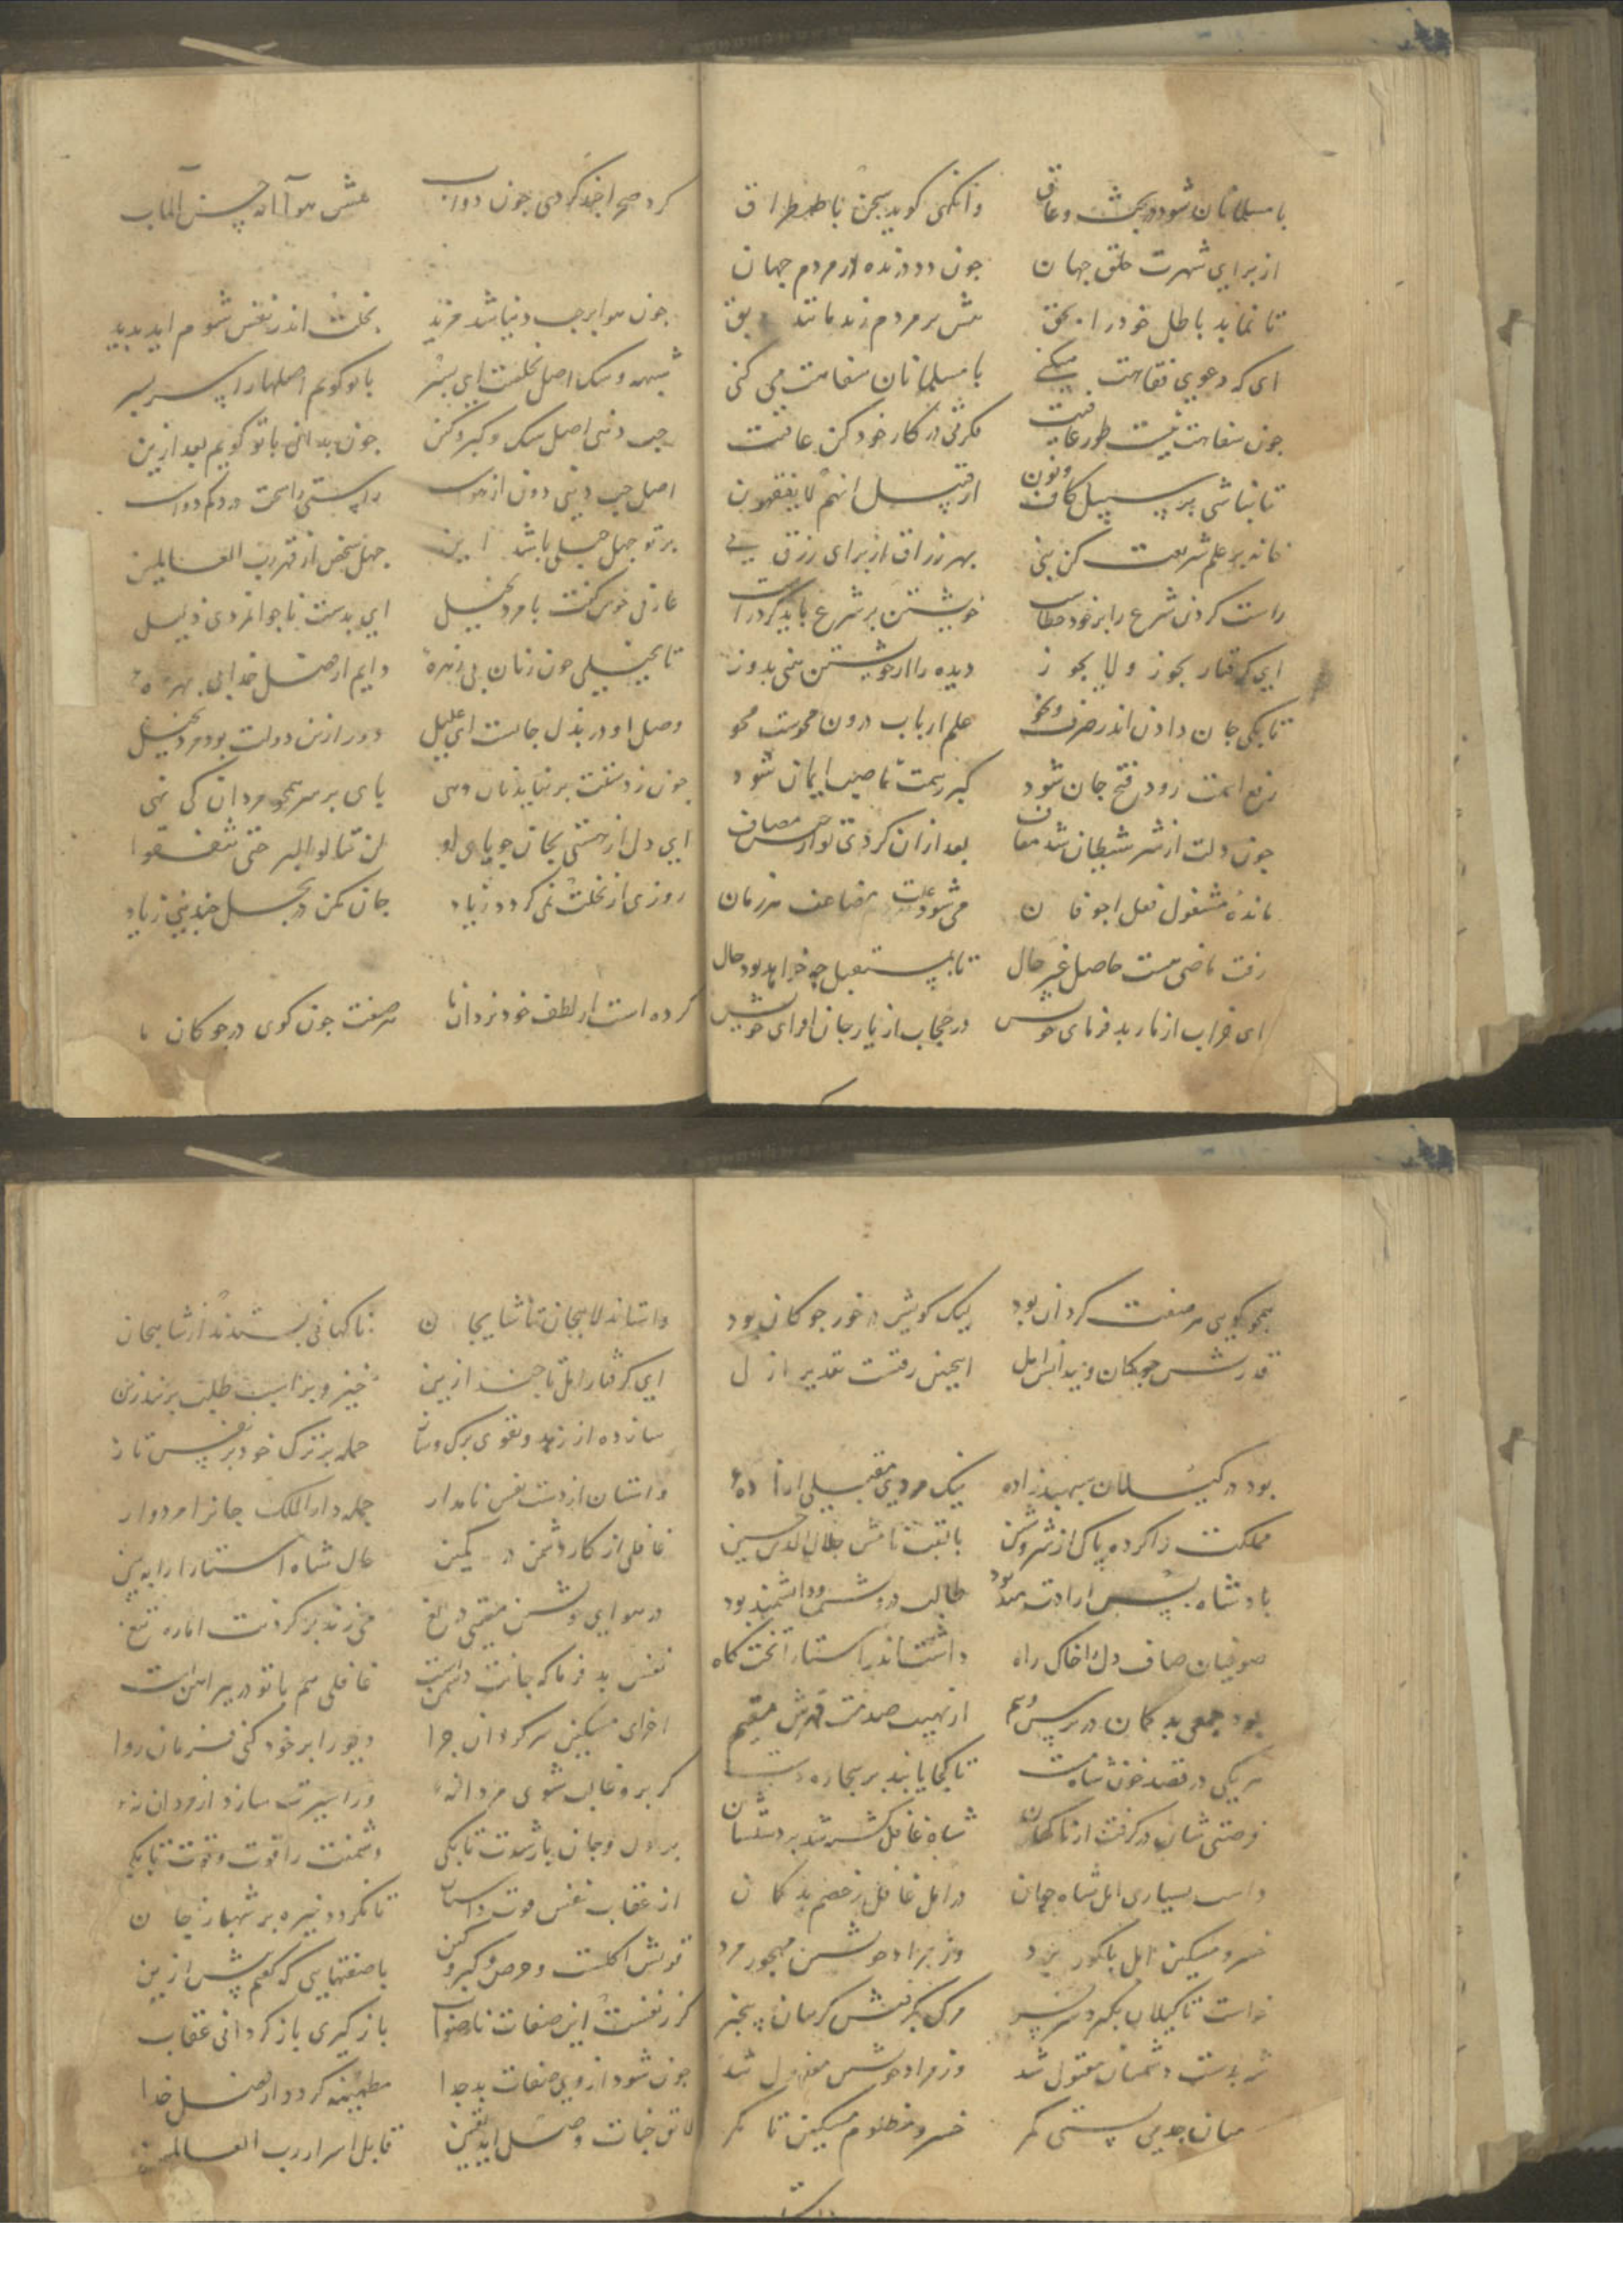 با مسلمانان شود در بحث و عاق وانگهی کوید سخن با طمطراق
از برای شهرت خلق جهان جون دد درنده در مردم جهان
تا نماید باطل خود را بحق بر مردم زند مانند
ای که دعوی فقاهت میکنی با مسلمانان سفاهت می کنی
جون سفاهت نیست طور عافیت فکرتی در کار خود کن عاقبت
تا نباشی بر سبیل کاف و نون از قبیل انهم لا یفقهون
خانه بر علم شریعت کن بنی بهر رزاق از برای رزق نی
راست کردی شرع را بر خود خطاست خویشتن بر شرع باید کرد راست
ای کرفتار یجوز و لا یجوز دیده را از خویشتن بینی بدوز
تا بکی جان دادن اندر صرف و نحو علم ارباب درون محوست محو
رفع انت زود فتح جان شود کسر رسمت نصب ایمان شود
جون دلت از شر شیطان شد معاف بعد ازان کردی تو از مصاف
مانده مشغول فعل اجوفان می شود علت مضاعف هر زمان
رفت ماضی نیست حاصل غیر حال تا بمستقبل چه خواهد بود حال
ای خراب از مار بد فرمای خویش در حجاب از یار جان افزای خویش
کرد صحرا جند کردی جون دواب عنده حسن المآب
جون هوا بر حب دنیا شد مزید بخلت اندر نفس شوم اید پدید
شبهه و شک اصل بخلست ای پسر با تو کویم اصلها را سر بسر
حب دنیی اصل شک و کبر و کین جون بدانی با تو کویم بعد ازین
اصل حب دنیی دون از هواست راستی راهست در دکم دواست
بر تو جهل جبلی باشد این جهل شخص از قهر رب العالمین
عارفی خوش کفت با مرد بخیل ای بدست ناجوانمردی ذلیل
تا بخیلی جون زنان بی زهره دایم از فضل خدا بی بهره
وصل او در بذل جانست ای علیل دور ازین دولت بود مرد بخیل
جون ز دستت بر نیاید نان دهی پای بر سر همجو مردان کی نهی
ای دل از هستی بجان جویای او لن تنالوا البر حتی تنفقوا
روزی از بخلت نمی کردد زیاد جان مکن در بخل جندینی زیاد
کرده است از لطف خود یزدان ما هر صفت جون کوی در جوکان ما
همجو کویی هر صفت کردان بود لیک کویش در خور جوکان بود
قدرتش جوکان و یید انس امل اینجنین رفتست تقدیر ازل
بود در کیلان سپهبدزاده نیک مردی مقبلی ازاده
مملکت را کرده پاک از شر و شین با لقب نامش جلال الدین حسین
بادشاه بس ارادتمند بود طالب درویش و دانشمند بود
صوفیان صاف دل را خاک راه داشت اندر استارا تختکاه
بود جمعی بد کمان در ترس و بیم از نهیب صدمت قهرش مقیم
هر یکی در قصد خون شاه مست تا کجا یابند بر بیجاره دست
فرصتی شان در کرفت از ناکهان شاه غافل کشته شد بر دستشان
داشت بسیاری امل شاه جهان در امل غافل ز خصم بد کمان
خسرو مسکین امل با کور برد وز مراد خویشتن مهجور مرد
خواست تا کیلان بکیرد سر بسر مرک بکرفتش کریبان بیخبر
شه بدست دشمنان مقتول شد وز مراد خویش معزول شد
میان جدی بستی کمر خسرو مظلوم مسکین تا مکر
واستاند لاهیجان تا شایجان ناکهانی بستدند از شاه جان
ای کرفتار امل تا جند ازین خیز و بر اسب طلب بر بند زین
ساز ده از زهد و تقوی برک و ساز حمله بر ترک خود بر نفس تاز
واستان از دست نفس نامدار جمله دار الملک جانرا مردوار
غافلی از کار دشمن در کمین حال شاه استارا را ببین
در هوای خویشتن مقیمی در دریغ می زند بر کردنت اماره تیغ
نفس بد فرما که جانت دشمنست غافلی هم با تو در پیراهنست
اخر ای مسکین سرکردان جرا دیو را بر خود کنی فرمان روا
کر برو غالب شوی مردانه ور اسیرت سازد از مردان نه
بر دل و جان بار شدت تا بکی دشمنت را قوت و قوت تا بکی
از عقاب نفس قوت واستان تا نکردد خیره بر شهباز جان
قوتش اکلست و حرص و کبر و کین با صفتهایی که کفتم پیش ازین
کر ز نفست این صفات ناصواب باز کیری باز کردانی عقاب
جون شود از وی صفات بد جدا مطمئنه کردد از فضل خدا
لایق جنات وصل اید یقین قابل اسرار رب العالمین